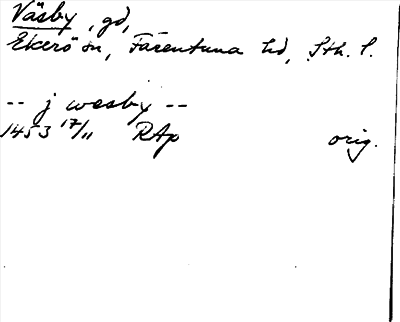 Väsby, gd,
Ekerö sn, Färentuna hd, Sth. l.
-- j wesby --
1453 17/11 RAp orig.